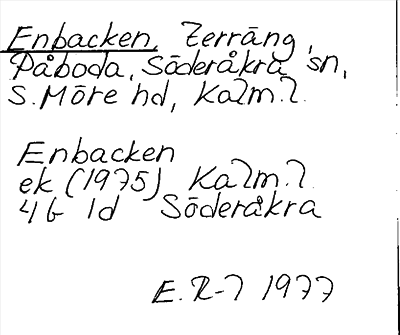 Enbacken, Terräng,
Påboda, Söderåkra sn,
S. Möre hd, Kalm. l.
Enbacken
ek (1975) Kalm. l.
4G 1d Söderåkra
E. R-l 1977